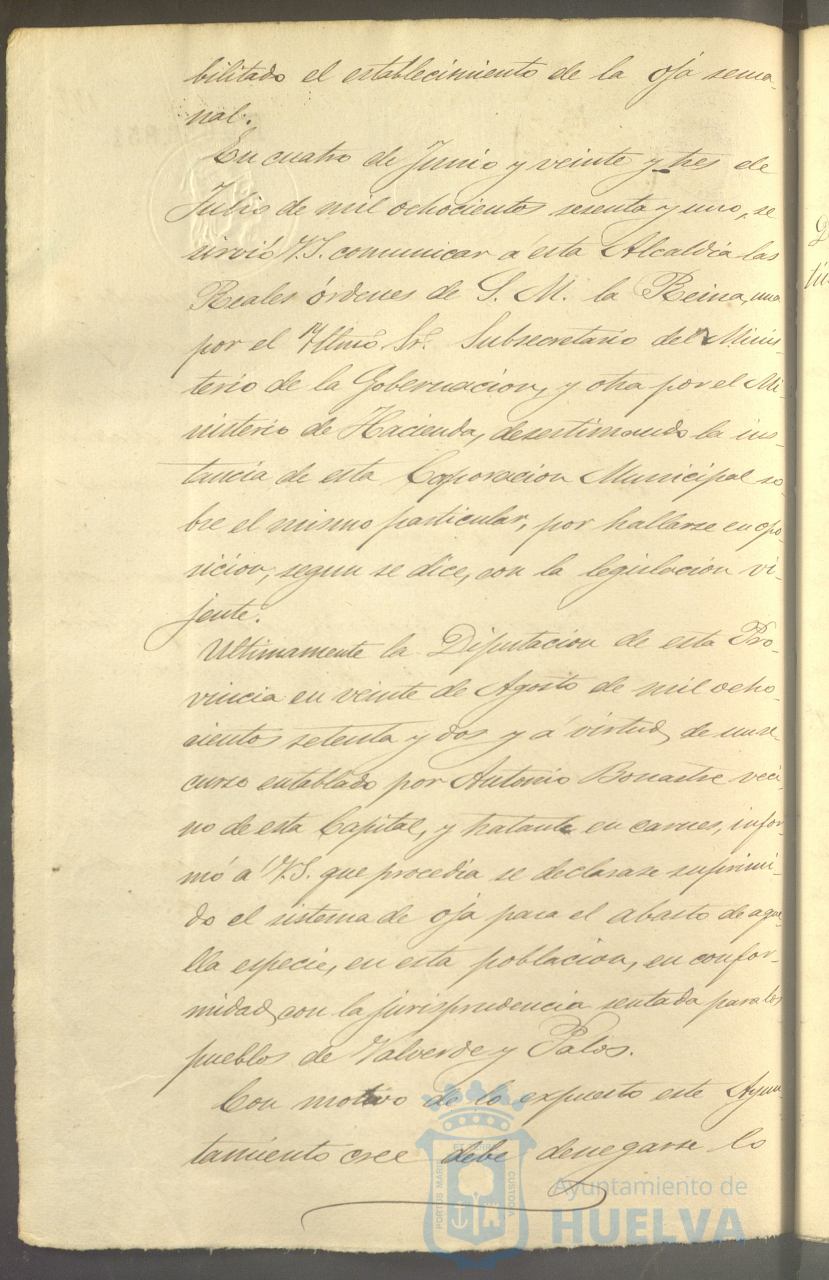 bilitado el establecimiento de la oja sema-
nal.
En cuatro de Junio y veinte y tres de
Julio de mil ochocientos sesenta y uno, se
sirvió V.S. comunicar a esta Alcaldía las
Reales órdenes de S. M. la Reina, una
por el Yltmo Sr. Subsecretario del Minis-
terio de la Gobernacion, y otra por el Mi-
nisterio de Hacienda, desestimando la ins-
tancia de esta Coporacion Municipal so-
bre el mismo particular, por hallarse en opo-
sicion, segun se dice, con la legislacion vi-
jente.
Ultimamente la Diputacion de esta Pro-
vincia en veinte de Agosto de mil ocho-
cientos setenta y dos y á virtud, de un re-
curso entablado por Antonio Bonastre veci-
no de esta Capital, y tratante en carnes, infor-
mó a V.S. que procedia se declarase suprimi-
do el sistema de oja para el abasto de aque-
lla especie, en esta poblacion, en confor-
midad, con la jurisprudencia sentada para los
pueblos de Valverde y Palos.
Con motivo de lo expuesto este Ayun-
tamiento cree debe denegarse lo
PORTUS MARIS
CUSTODIA
Ayuntamiento de
HUELVA